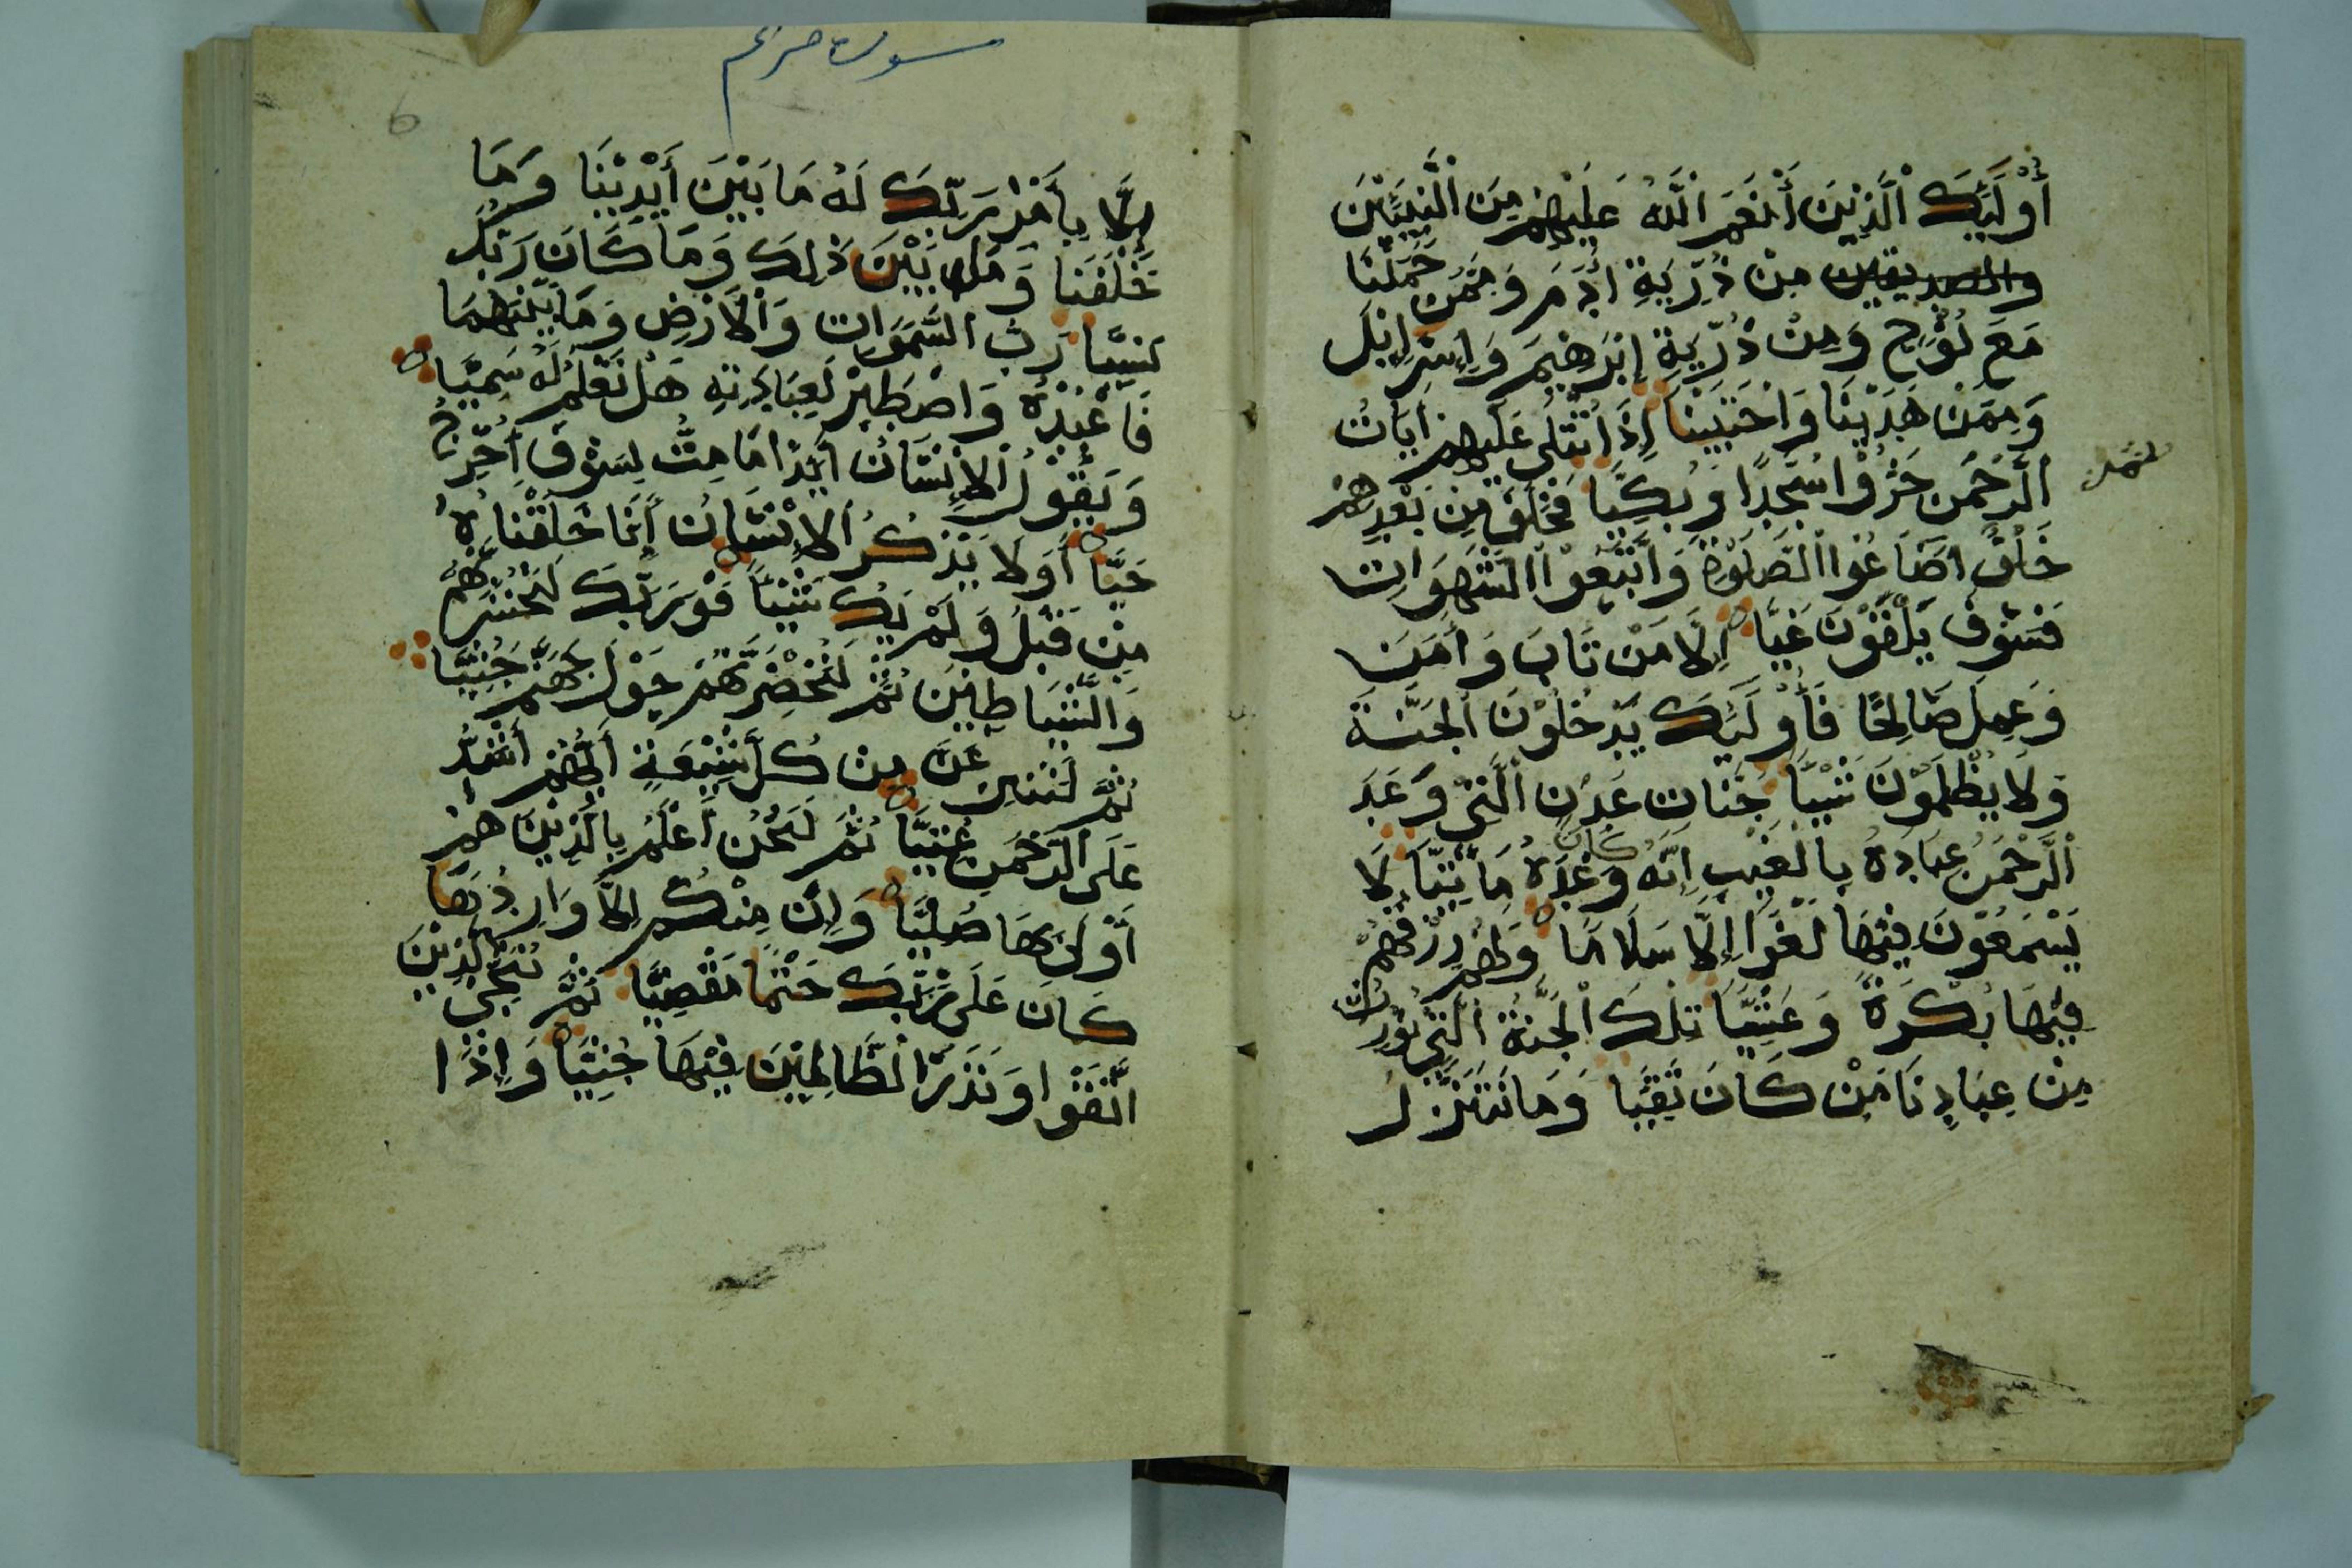 أُوْلَئِكَ الَّذِيْنَ أَنْعَمَ اللَّهُ عَلَيْهِمْ مِنَ النَّبِيِّيْنَ
والصديقين مِنْ ذُرِّيَةِ اٰدَمَ وَمِمَّنْ حَمَلْنَا
مَعَ نُوْحٍ وَمِنْ ذُرِّيَةِ إِبْرَهِيْمَ وَإِسْرَايْلَ
وَمِمَّنْ هَدَيْنَا وَاجْتَبَيْنَا إِذَا تُتْلَى عَلَيْهِمْ اٰيَاتُ
الرَّحْمَنِ خَرُّوْا سُجَّدًا وَبُكِيًّا فَخَلَفَ مِنْ بَعْدِهِمْ
خَلْفٌ اَضَاعُوْا الصَّلَوٰةَ وَاتَّبَعُوْا الشَّهَوَاتِ
فَسَوْفَ يَلْقَوْنَ غَيًّا اِلَّا مَنْ تَابَ وَاٰمَنَ
وَعَمِلَ صَالِحًا فَأُوْلَئِكَ يَدْخُلُوْنَ الْجَنَّةَ
وَلَا يُظْلَمُوْنَ شَيْئًا جَنَّاتِ عَدْنٍ الَّتِيْ وَعَدَ
الرَّحْمَنُ عِبَادَهُ بِالْغَيْبِ إِنَّهُ كَانَ وَعْدُهُ مَاتِيًّا لَا
يَسْمَعُوْنَ فِيْهَا لَغْوًا إِلَّا سَلَامًا وَلَهُمْ رِزْقُهُمْ
فِيْهَا بُكْرَةً وَعَشِيًّا تِلْكَ الْجَنَّةُ الَّتِيْ نُوْرِثُ
مِنْ عِبَادِنَا مَنْ كَانَ تَقِيًّا وَمَا نَتَنَزَّلُ
سورة مريم
6
إِلَّا بِأَمْرِ رَبِّكَ لَهُ مَا بَيْنَ أَيْدِيْنَا وَمَا
خَلْفَنَا وَمَا بَيْنَ ذٰلِكَ وَمَا كَانَ رَبُّكَ
نَسِيًّا رَبُّ السَّمَوَاتِ وَالْاَرْضِ وَمَا بَيْنَهُمَا
فَاعْبُدْهُ وَاصْطَبِرْ لِعِبَادَتِهِ هَلْ تَعْلَمُ لَهُ سَمِيًّا
وَيَقُوْلُ الْاِنْسَانُ أَئِذَا مَا مِتُّ لَسَوْفَ أُخْرَجُ
حَيًّا أَوَلَا يَذْكُرُ الْاِنْسَانُ أَنَّا خَلَقْنَاهُ
مِنْ قَبْلُ وَلَمْ يَكُ شَيْئًا فَوَرَبِّكَ لَنَحْشُرَنَّهُمْ
وَالشَّيَاطِيْنَ ثُمَّ لَنُحْضِرَنَّهُمْ حَوْلَ جَهَنَّمَ جُثِيًّا
ثُمَّ لَنَنْزِعَنَّ مِنْ كُلِّ شِيْعَةٍ أَيُّهُمْ أَشَدُّ
عَلَى الرَّحْمَنِ عُتِيًّا ثُمَّ لَنَحْنُ أَعْلَمُ بِالَّذِيْنَ هُمْ
أَوْلَى بِهَا صُلِيًّا وَإِنْ مِنْكُمْ اِلَّا وَارِدُهَا
كَانَ عَلَى رَبِّكَ حَتْمًا مَقْضِيًّا ثُمَّ نُنَجِّي الَّذِيْنَ
اتَّقَوْا وَنَذَرُ الظَّالِمِيْنَ فِيْهَا جُثِيًّا وَإِذَا